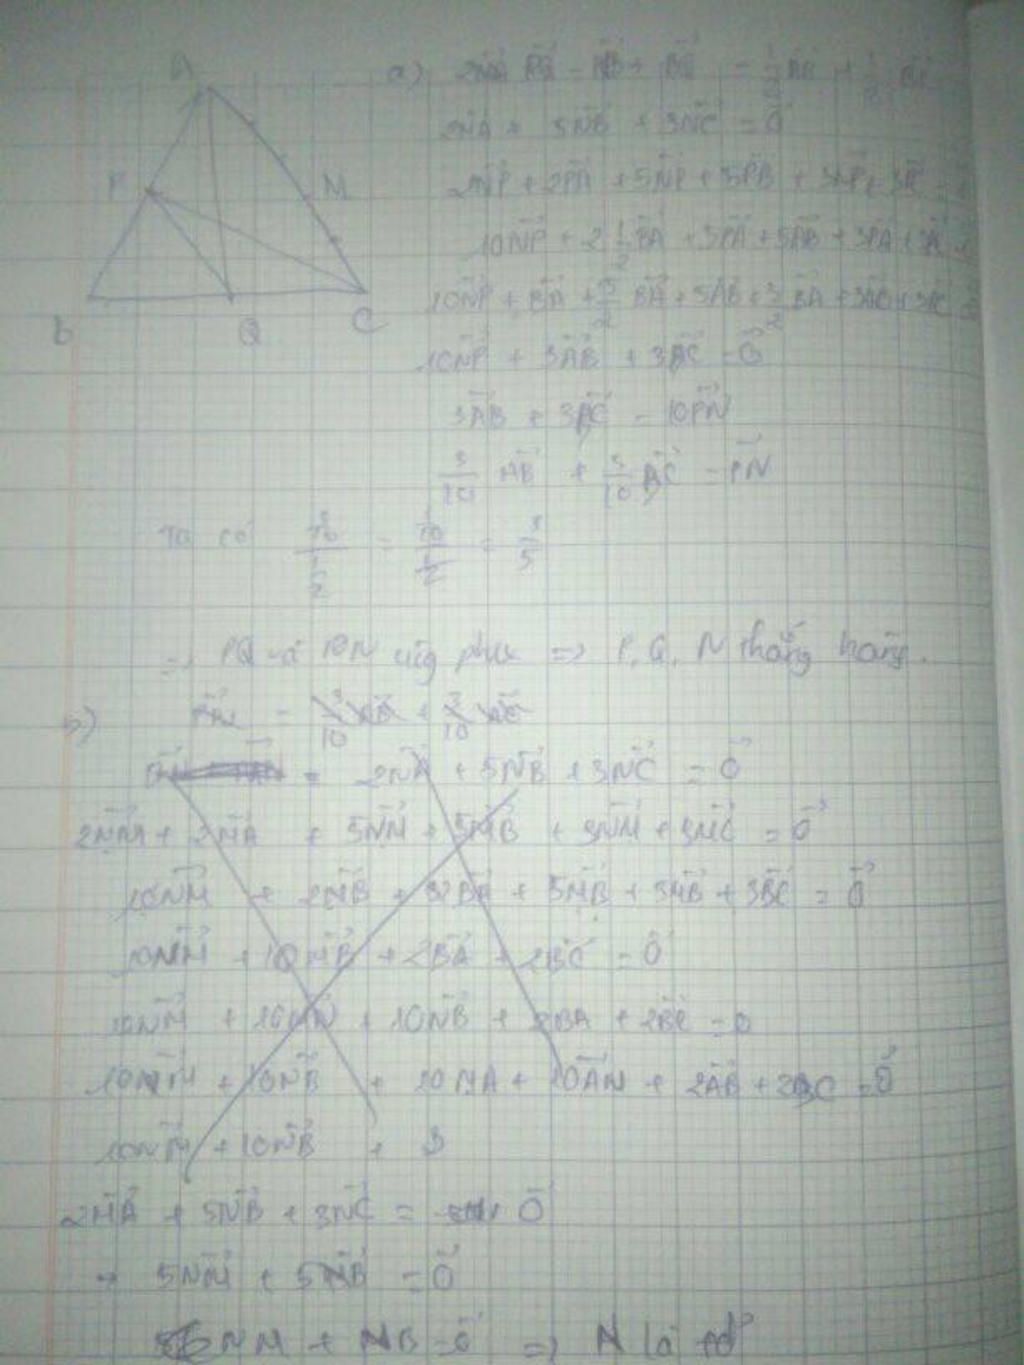 A
P
M
b
Q
C
a) PQ = PB + BQ = 1/2 AB + 1/2 BC
2NA + 5NB + 3NC = 0
2NP + 2PA + 5NP + 5PB + 3NP + 3PC
10NP + 2 1/2 BA + 5PA + 5AB + 3PA + 3AC
10NP + BA + 5/2 BA + 5AB + 3/2 BA + 3AB + 3BC
10NP + 3AB + 3BC = 0
3AB + 3BC = 10PN
3/10 AB + 3/10 BC = PN
Ta có 3/10 / 1/2 = 3/10 / 1/2 = 3/5
=> PQ và PN cùng phương => P, Q, N thẳng hàng.
b)
= 2NA + 5NB + 3NC = 0
2NM + 2MA + 5NM + 5MB + 3NM + 3MC = 0
10NM + 2MB + 2BA + 5MB + 3MB + 3BC = 0
10NM + 10MB + 2BA + 2BC = 0
10NM + 10MN + 10NB + 2BA + 2BC = 0
10NM + 10NB + 10NA + 10AN + 2AB + 2BC = 0
10NM + 10NB + 3
2NA + 5NB + 3NC = 0
5NM + 5NB = 0
NM + NB = 0 => N là